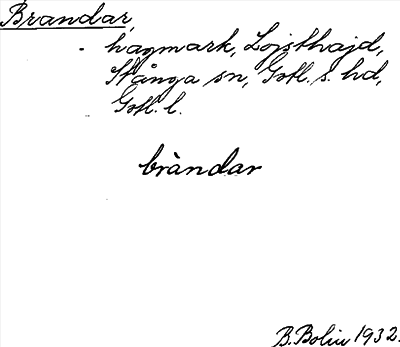 Brandar,
- hagmark, Lojsthajd,
Stånga sn, Gotl. s. hd,
Gotl. l.
bràndar
B. Bolin 1932.